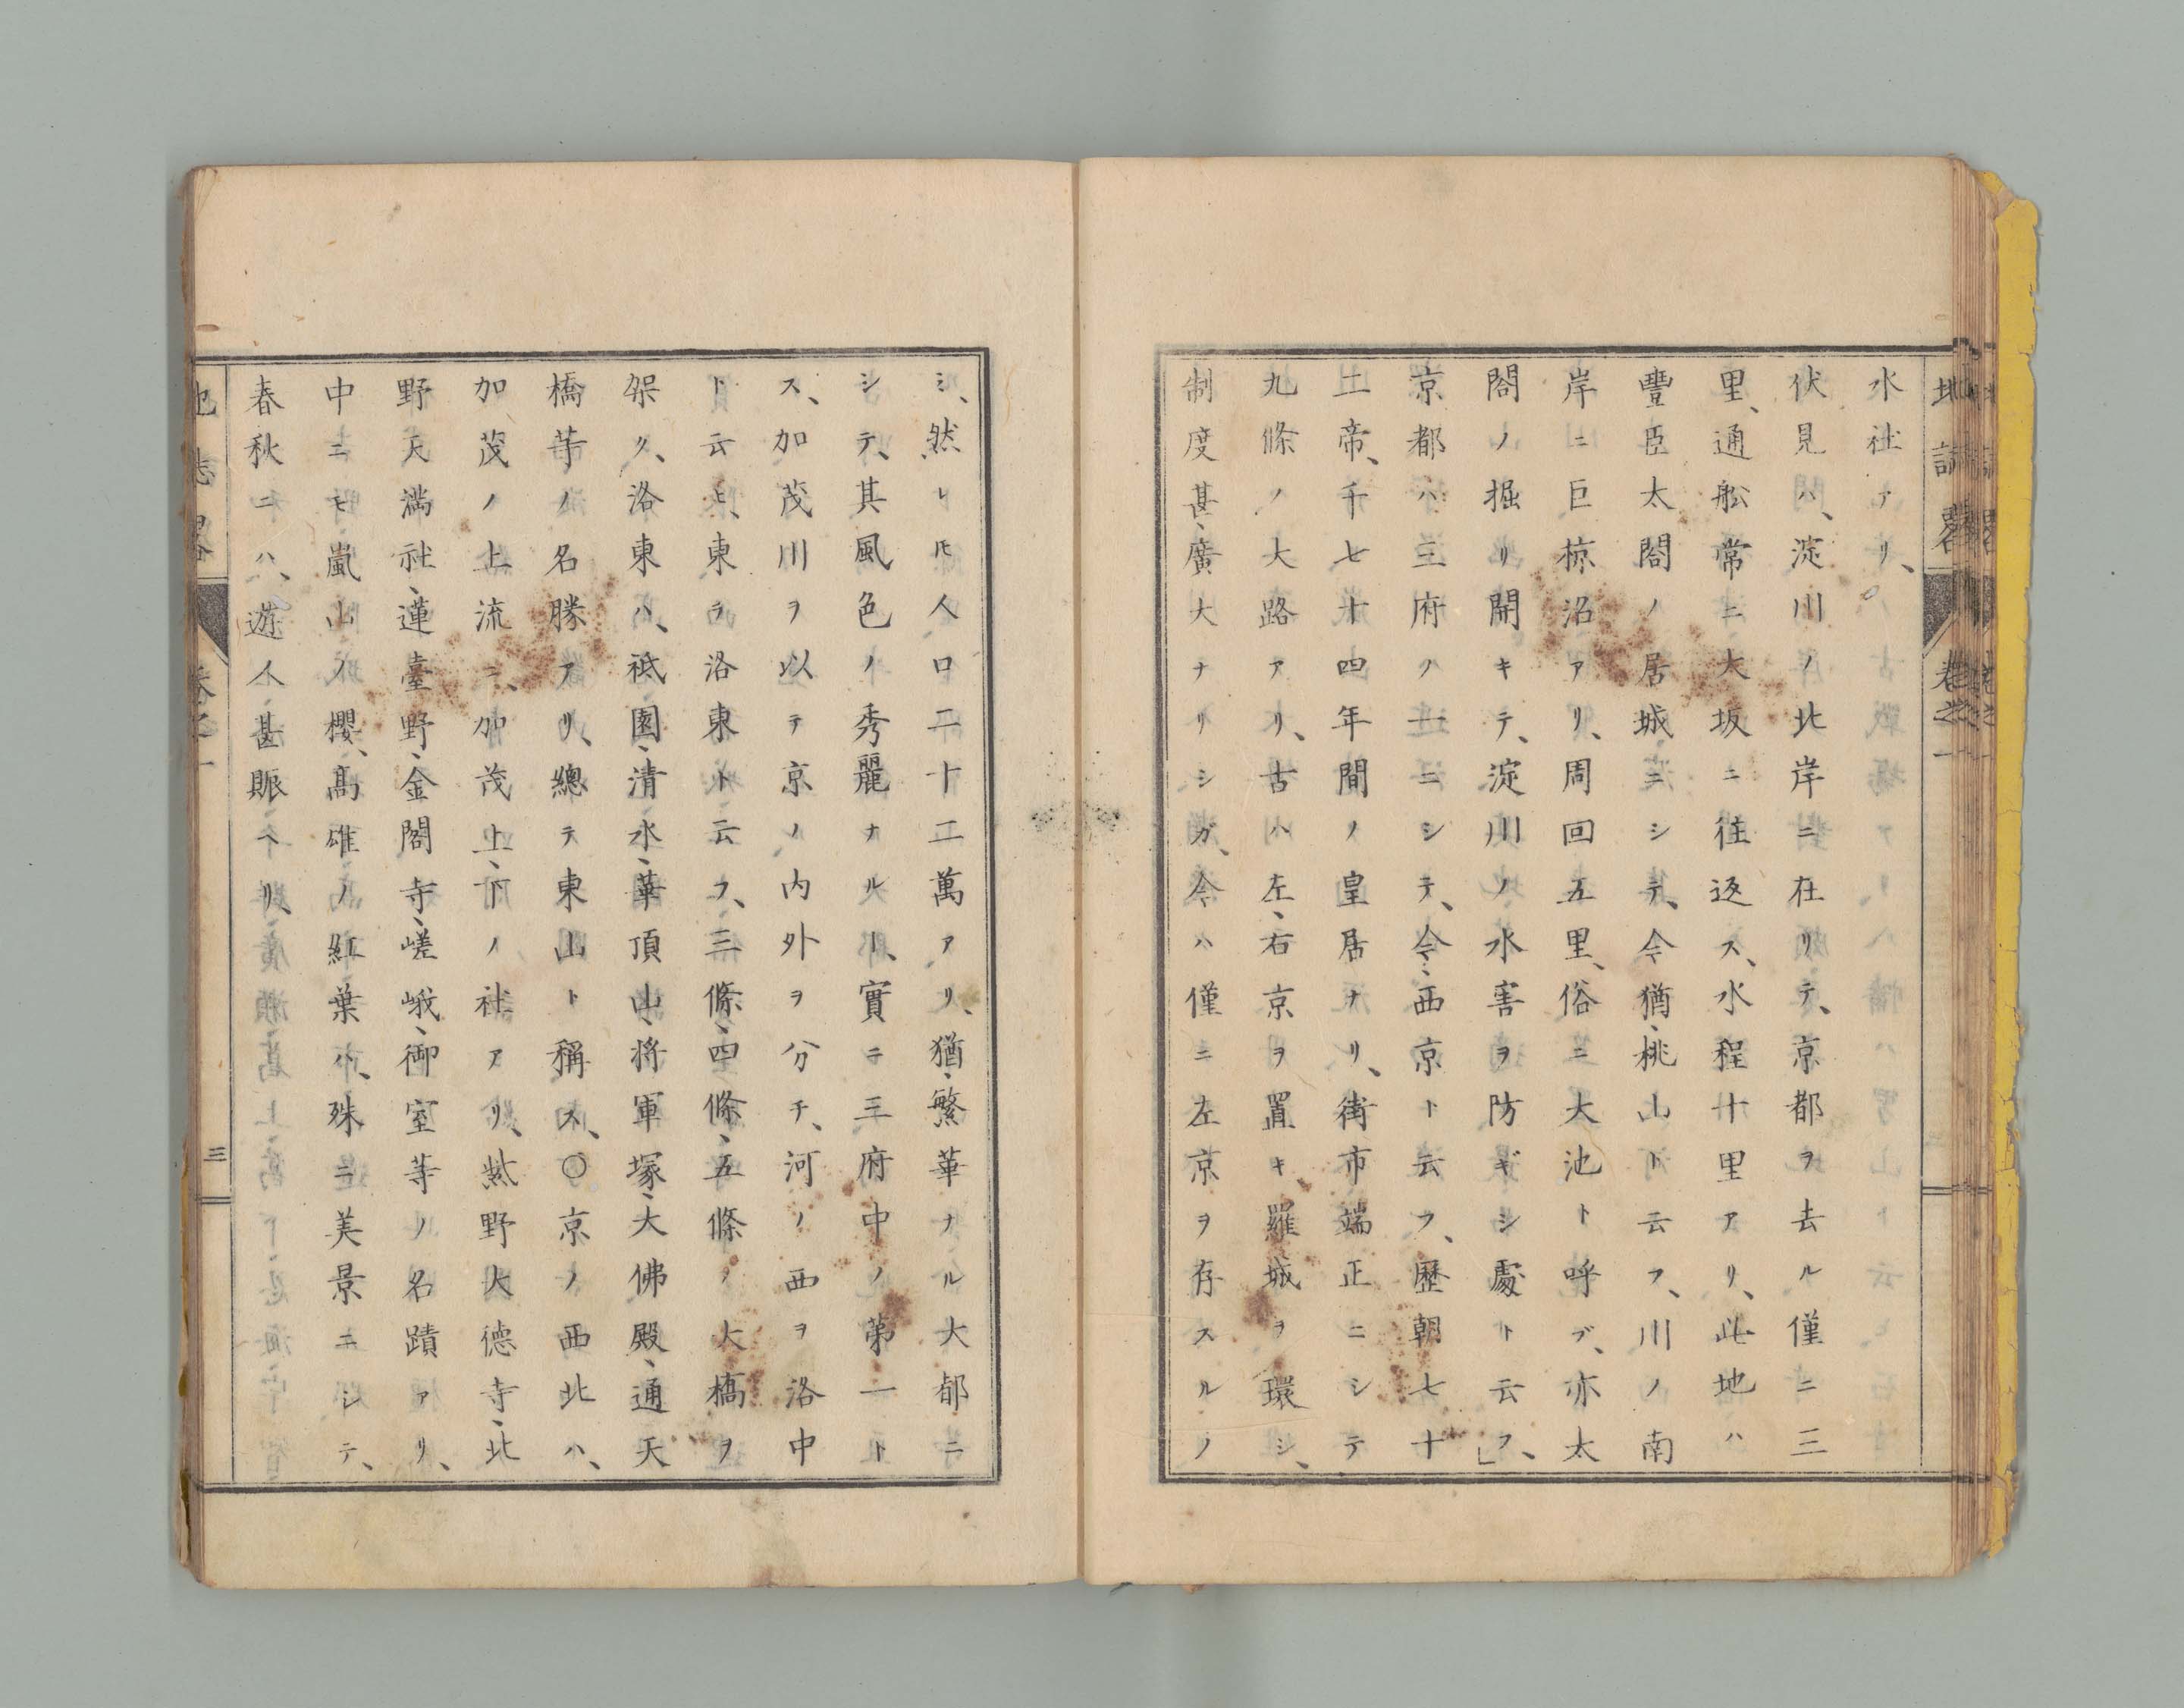 地誌畧
卷之一
水社アリ、
伏見ハ、淀川ノ北岸ニ在リテ、京都ヲ去ル僅ニ三
里、通舩常ニ大坂ニ往返ス、水程十里アリ、此地ハ
豐臣太閤ノ居城ニシテ、今猶、桃山ト云フ、川ノ南
岸ニ巨椋沼アリ、周回五里、俗ニ大池ト呼ブ、亦太
閤ノ掘リ開キテ、淀川ノ水害ヲ防ギシ處ト云フ、」
京都ハ、三府ノ一ニシテ、今、西京ト云フ、歷朝七十
二帝、千七十四年間ノ皇居ナリ、街市端正ニシテ
九條ノ大路アリ、古ハ左、右京ヲ置キ羅城ヲ環シ、
制度甚、廣大ナリシガ、今ハ僅ニ左京ヲ存スルノ
ミ、然レ𪜈人口二十二萬アリ、猶、繁華ナル大都ニ
シテ、其風色ノ秀麗ナルハ、實ニ三府中ノ第一ト
ス、加茂川ヲ以テ京ノ内外ヲ分チ、河ノ西ヲ洛中
ト云ヒ、東ヲ洛東ト云フ、三條、四條、五條ノ大橋ヲ
架ク、洛東ハ、祗園、清水、華頂山、将軍塚、大佛殿、通天
橋等ノ名勝アリ、總テ東山ト稱ス、〇京ノ西北ハ、
加茂ノ上流ニ、加茂上、下ノ社アリ、紫野大德寺、北
野天満社、蓮臺野、金閣寺、嵯峨、御室等ノ名蹟アリ、
中ニモ、嵐山ノ櫻、高雄ノ紅葉ハ、殊ニ美景ニシテ、
春秋ニハ、遊人甚賑ヘリ、
地誌畧
卷之一
三